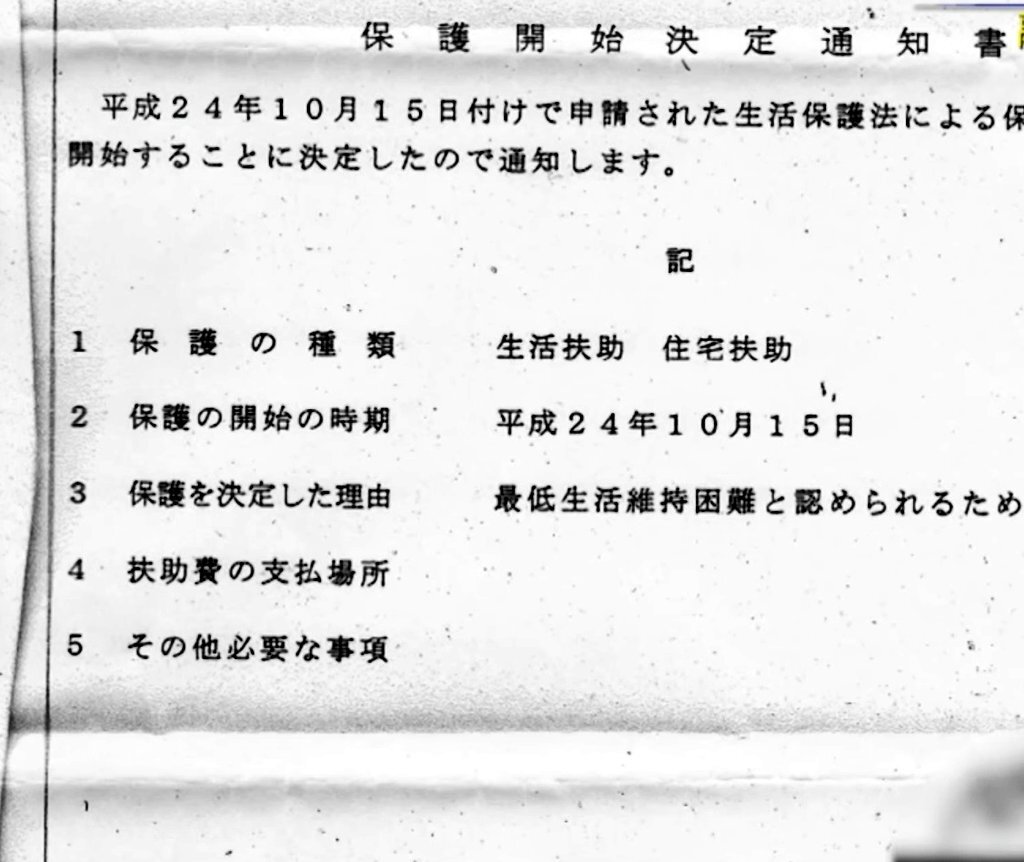 保護開始決定通知書
平成２４年１０月１５日付けで申請された生活保護法による保
開始することに決定したので通知します。
記
1 保護の種類 生活扶助 住宅扶助
2 保護の開始の時期 平成２４年１０月１５日
3 保護を決定した理由 最低生活維持困難と認められるため
4 扶助費の支払場所
5 その他必要な事項